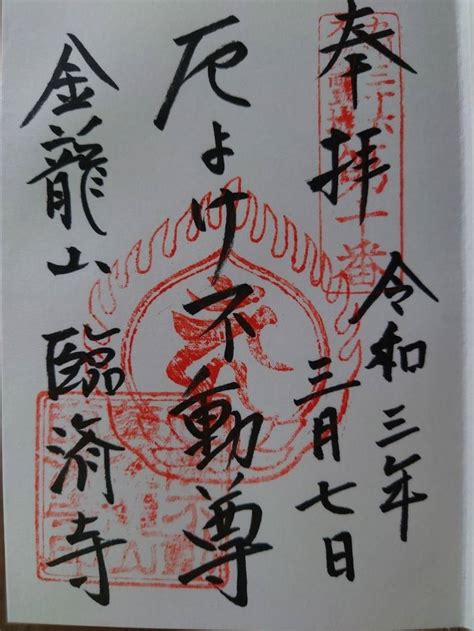 奉拝
令和三年
三月七日
厄よけ不動尊
金龍山臨済寺
第一番